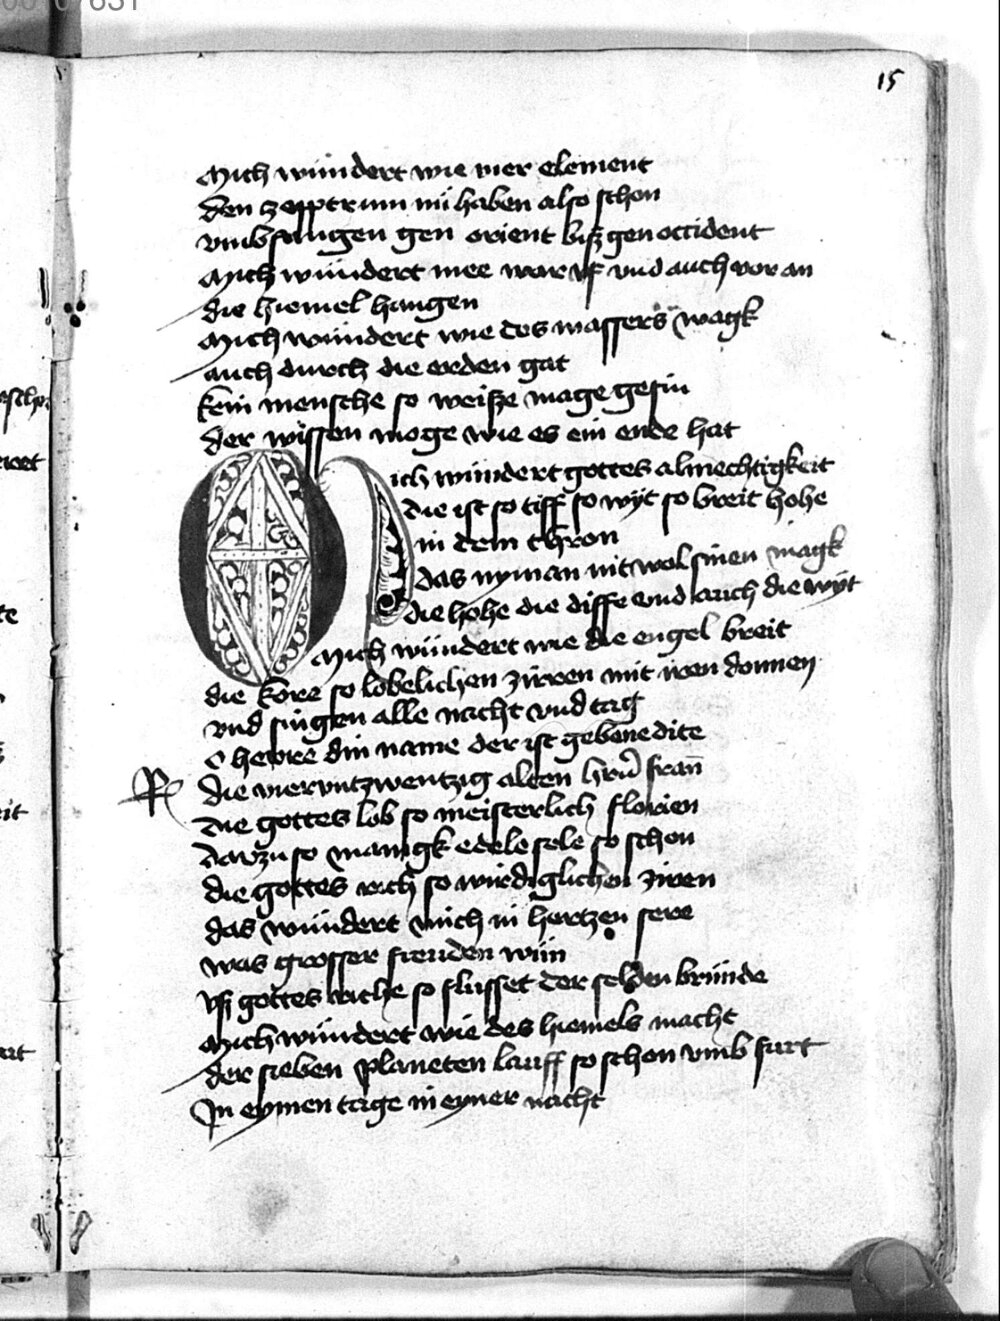 15
Mich wundert wie vier element
den zepptrum nü haben also schon
vmbfangen gen orient biß gen occident
Mich wundert mee war vf vnd auch vor an
die hiemel hangen
Mich wundert wie des wassers wagk
auch durch die erden gat
kein mensche so weiße mage gesin
der wissen moge wie es ein ende hat
Mich wundert gottes almechtigkeit
die ist so tiff so wyt so breit hohe
in dem thron
das nyman nit wol sinen magk
die hohe die diffe vnd auch die wyt
Mich wundert wie die engel breit
die kore so lobelichen zieren mit iren donnen
vnd singen alle nacht vnd tag
o herre din name der ist gebenedite
die viervntzwentzig alten
die gottes lob so meisterlich florien
darzu so manigk edele sele so schon
die gottes rich so wirdiglichen zieren
das wundert mich in hertzen sere
was grosser freuden wün
vß gottes riche so flusset der selden brunde
Mich wundert wie des hiemels macht
der sieben planeten lauff so schon vmb furt
In eynen tage in eyner nacht